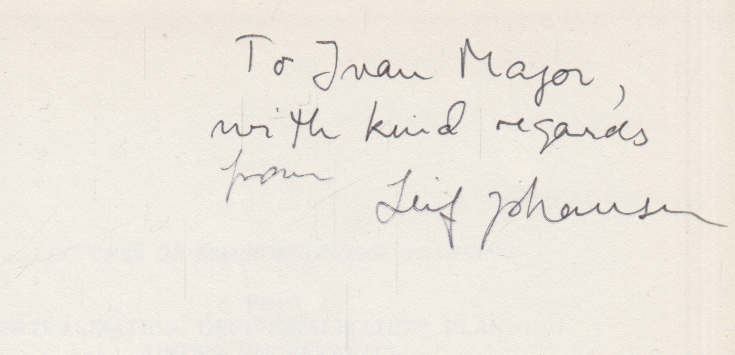 To Ivan Major,
with kind regards
from Leif Johansen